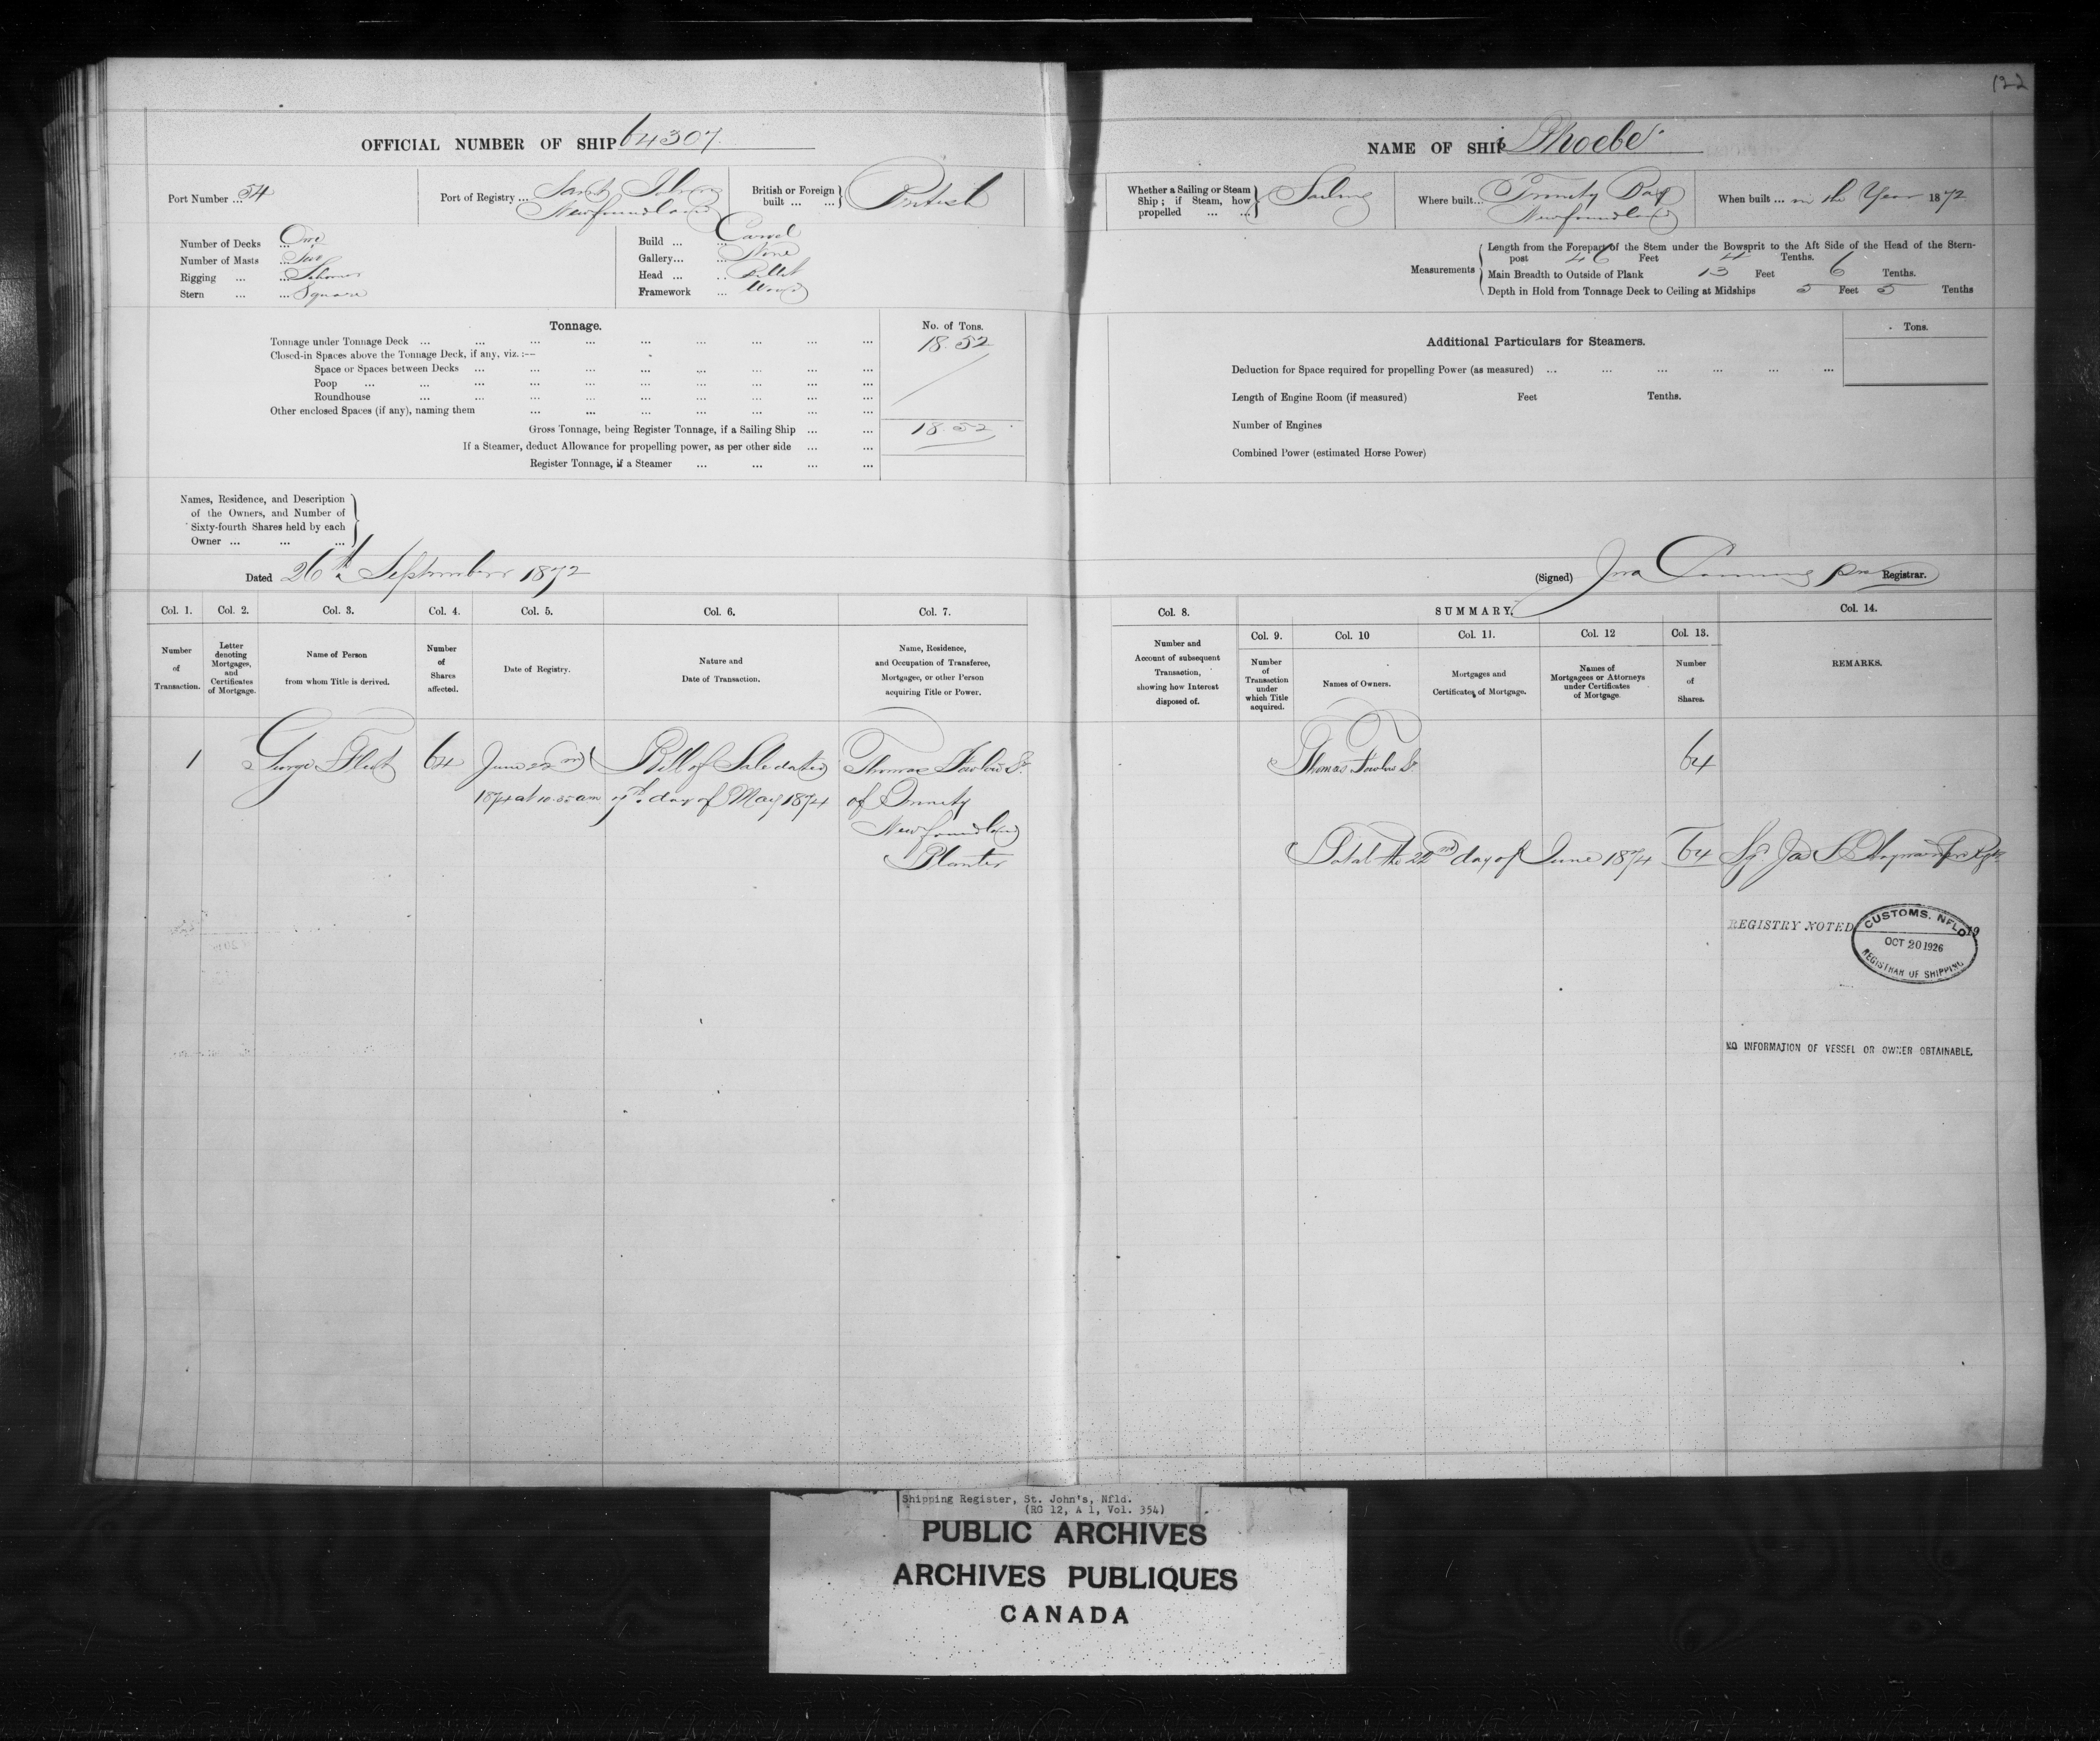 122
OFFICIAL NUMBER OF SHIP 64307.
NAME OF SHIP Phoebe
Port Number ... 54
Port of Registry ... Saint Johns
Newfoundland
British or Foreign built ... ... British
Whether a Sailing or Steam Ship ; if Steam, how propelled ... ... Sailing
Where built... Trinity Bay
Newfoundland
When built ... in the Year 1872
Number of Decks ... One
Number of Masts ... Two
Rigging ... ... Schooner
Stern ... ... Square
Build ... ... Carvel
Gallery... ... None
Head ... ... Billet
Framework ... Wood
Measurements
Length from the Forepart of the Stem under the Bowsprit to the Aft Side of the Head of the Stern-
post 46 Feet 4 Tenths.
Main Breadth to Outside of Plank 13 Feet 6 Tenths.
Depth in Hold from Tonnage Deck to Ceiling at Midships 5 Feet 5 Tenths
Tonnage.
No. of Tons.
Tonnage under Tonnage Deck ... 18.52
Closed-in Spaces above the Tonnage Deck, if any, viz. :—
Space or Spaces between Decks ...
Poop ...
Roundhouse ...
Other enclosed Spaces (if any), naming them ...
Gross Tonnage, being Register Tonnage, if a Sailing Ship ... 18.52
If a Steamer, deduct Allowance for propelling power, as per other side ...
Register Tonnage, if a Steamer ...
Additional Particulars for Steamers.
Tons.
Deduction for Space required for propelling Power (as measured) ...
Length of Engine Room (if measured) Feet Tenths.
Number of Engines
Combined Power (estimated Horse Power)
Names, Residence, and Description
of the Owners, and Number of
Sixty-fourth Shares held by each
Owner ... ... ...
Dated 26th September 1872
(Signed) Registrar.
Col. 1. Col. 2. Col. 3. Col. 4. Col. 5. Col. 6. Col. 7.
Number of Transaction.
Letter denoting Mortgages, and Certificates of Mortgage.
Name of Person from whom Title is derived.
Number of Shares affected.
Date of Registry.
Nature and Date of Transaction.
Name, Residence, and Occupation of Transferee, Mortgagee, or other Person acquiring Title or Power.
Col. 8. SUMMARY. Col. 14.
Col. 9. Col. 10 Col. 11. Col. 12 Col. 13.
Number and Account of subsequent Transaction, showing how Interest disposed of.
Number of Transaction under which Title acquired.
Names of Owners.
Mortgages and Certificates of Mortgage.
Names of Mortgagees or Attorneys under Certificates of Mortgage.
Number of Shares.
REMARKS.
1 George Fleet 64 June 22nd Bill of Sale dated Thomas Fowlow Sr.
1874 at 10.35 am 7th day of May 1874 of Trinity
Newfoundland
Planter
Thomas Fowlow Sr 64
Total the 22nd day of June 1874 64
REGISTRY NOTED 19
CUSTOMS. NFLD
OCT 20 1926
REGISTRAR OF SHIPPING
NO INFORMATION OF VESSEL OR OWNER OBTAINABLE.
Shipping Register, St. John's, Nfld.
(RG 12, A 1, Vol. 354)
PUBLIC ARCHIVES
ARCHIVES PUBLIQUES
CANADA